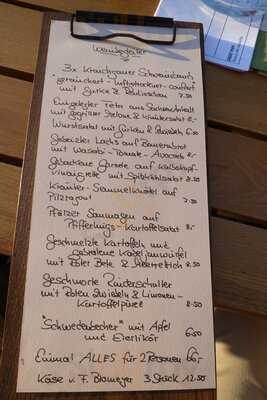 3x Kraichgauer
geräuchert - luftgetrocknet - confiert
mit Gurke & Radieschen 7.50
Eingelegter Feta aus
mit gegrillter Melone & Kräutersalat 8.-
Wurstsalat mit Gürkchen & Zwiebeln 6.50
Gebeizter Lachs auf Bauernbrot
mit Wasabi - Tomate - Avocado 8.-
Gebackene Garnele auf Kalbskopf-
vinaigrette mit Spitzkohlsalat 8.50
Kräuter - Semmelknödel auf
Pilzragout 7.50
Pfälzer Saumagen auf
Pfifferlings - Kartoffelsalat 8.-
Geschmelzte Kartoffeln und
gebratene
mit Roter Bete & Meerrettich 8.50
Geschmorte Rinderschulter
mit Roten Zwiebeln & Limonen-
Kartoffelpüree 8.50
"Schwedenbecher" mit Apfel
und Eierlikör 6.50
Einmal ALLES für 2 Personen 60,-
Käse v. F. Blomeyer 3 Stück 12.50